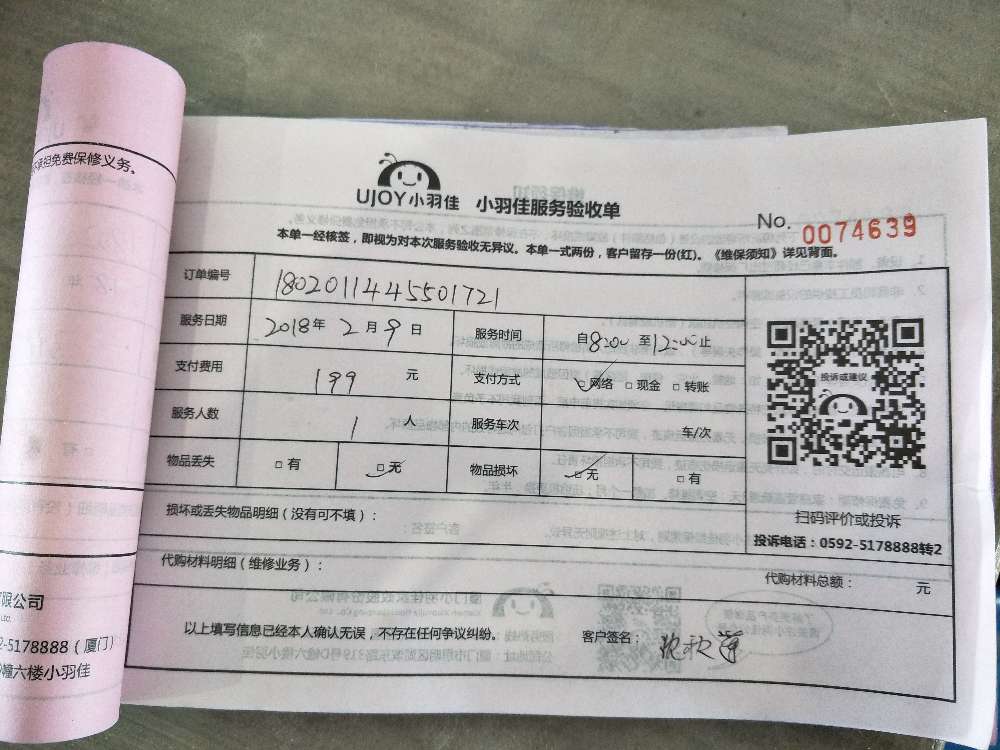 不承担免费保修义务。
UJOY小羽佳 小羽佳服务验收单
No. 0074639
本单一经核签，即视为对本次服务验收无异议。本单一式两份，客户留存一份(红)。《维保须知》详见背面。
订单编号 1802011445501721
服务日期 2018年 2月 9日 服务时间 自8:00 至12:00止
支付费用 199 元 支付方式 ☑网络 □现金 □转账
服务人数 1 人 服务车次 车/次
物品丢失 □有 ☑无 物品损坏 ☑无 □有
投诉或建议
扫码评价或投诉
投诉电话：0592-5178888转2
损坏或丢失物品明细（没有可不填）：
代购材料明细（维修业务）： 代购材料总额： 元
以上填写信息已经本人确认无误，不存在任何争议纠纷。 客户签名：
限公司
Ltd.
2-5178888（厦门）
幢六楼小羽佳